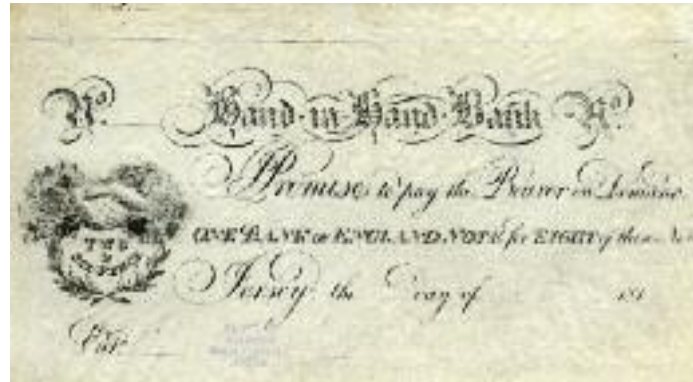 No. Hand-in-Hand-Bank No.
I Promise to pay the Bearer on Demand
ONE BANK OF ENGLAND NOTE for EIGHT of these
TWO
Jersey the day of 181